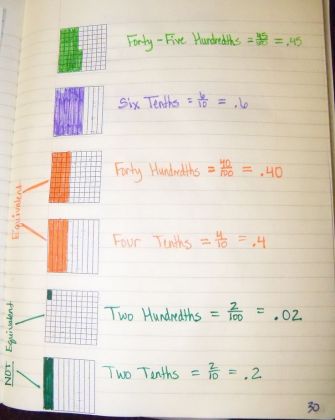 Forty-Five Hundredths = 45/100 = .45
Six Tenths = 6/10 = .6
Forty Hundredths = 40/100 = .40
Equivalent
Four Tenths = 4/10 = .4
Two Hundredths = 2/100 = .02
NOT Equivalent
Two Tenths = 2/10 = .2
30